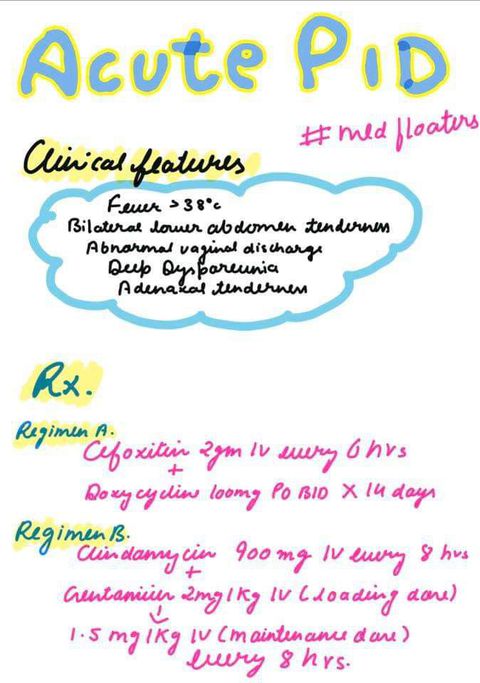 Acute PID
#med floaters
Clinical features
Fever >38°c
Bilateral lower abdomen tenderness
Abnormal vaginal discharge
Deep Dyspareunia
Adenaxal tenderness
Rx.
Regimen A.
Cefoxitin 2gm IV every 6 hrs
+
Doxycyclin 100mg PO BID X 14 days
Regimen B.
Clindamycin 900 mg IV every 8 hrs
+
Gentamicin 2mg/Kg IV (loading dose)
↓
1.5 mg/Kg IV (maintenance dose)
every 8 hrs.